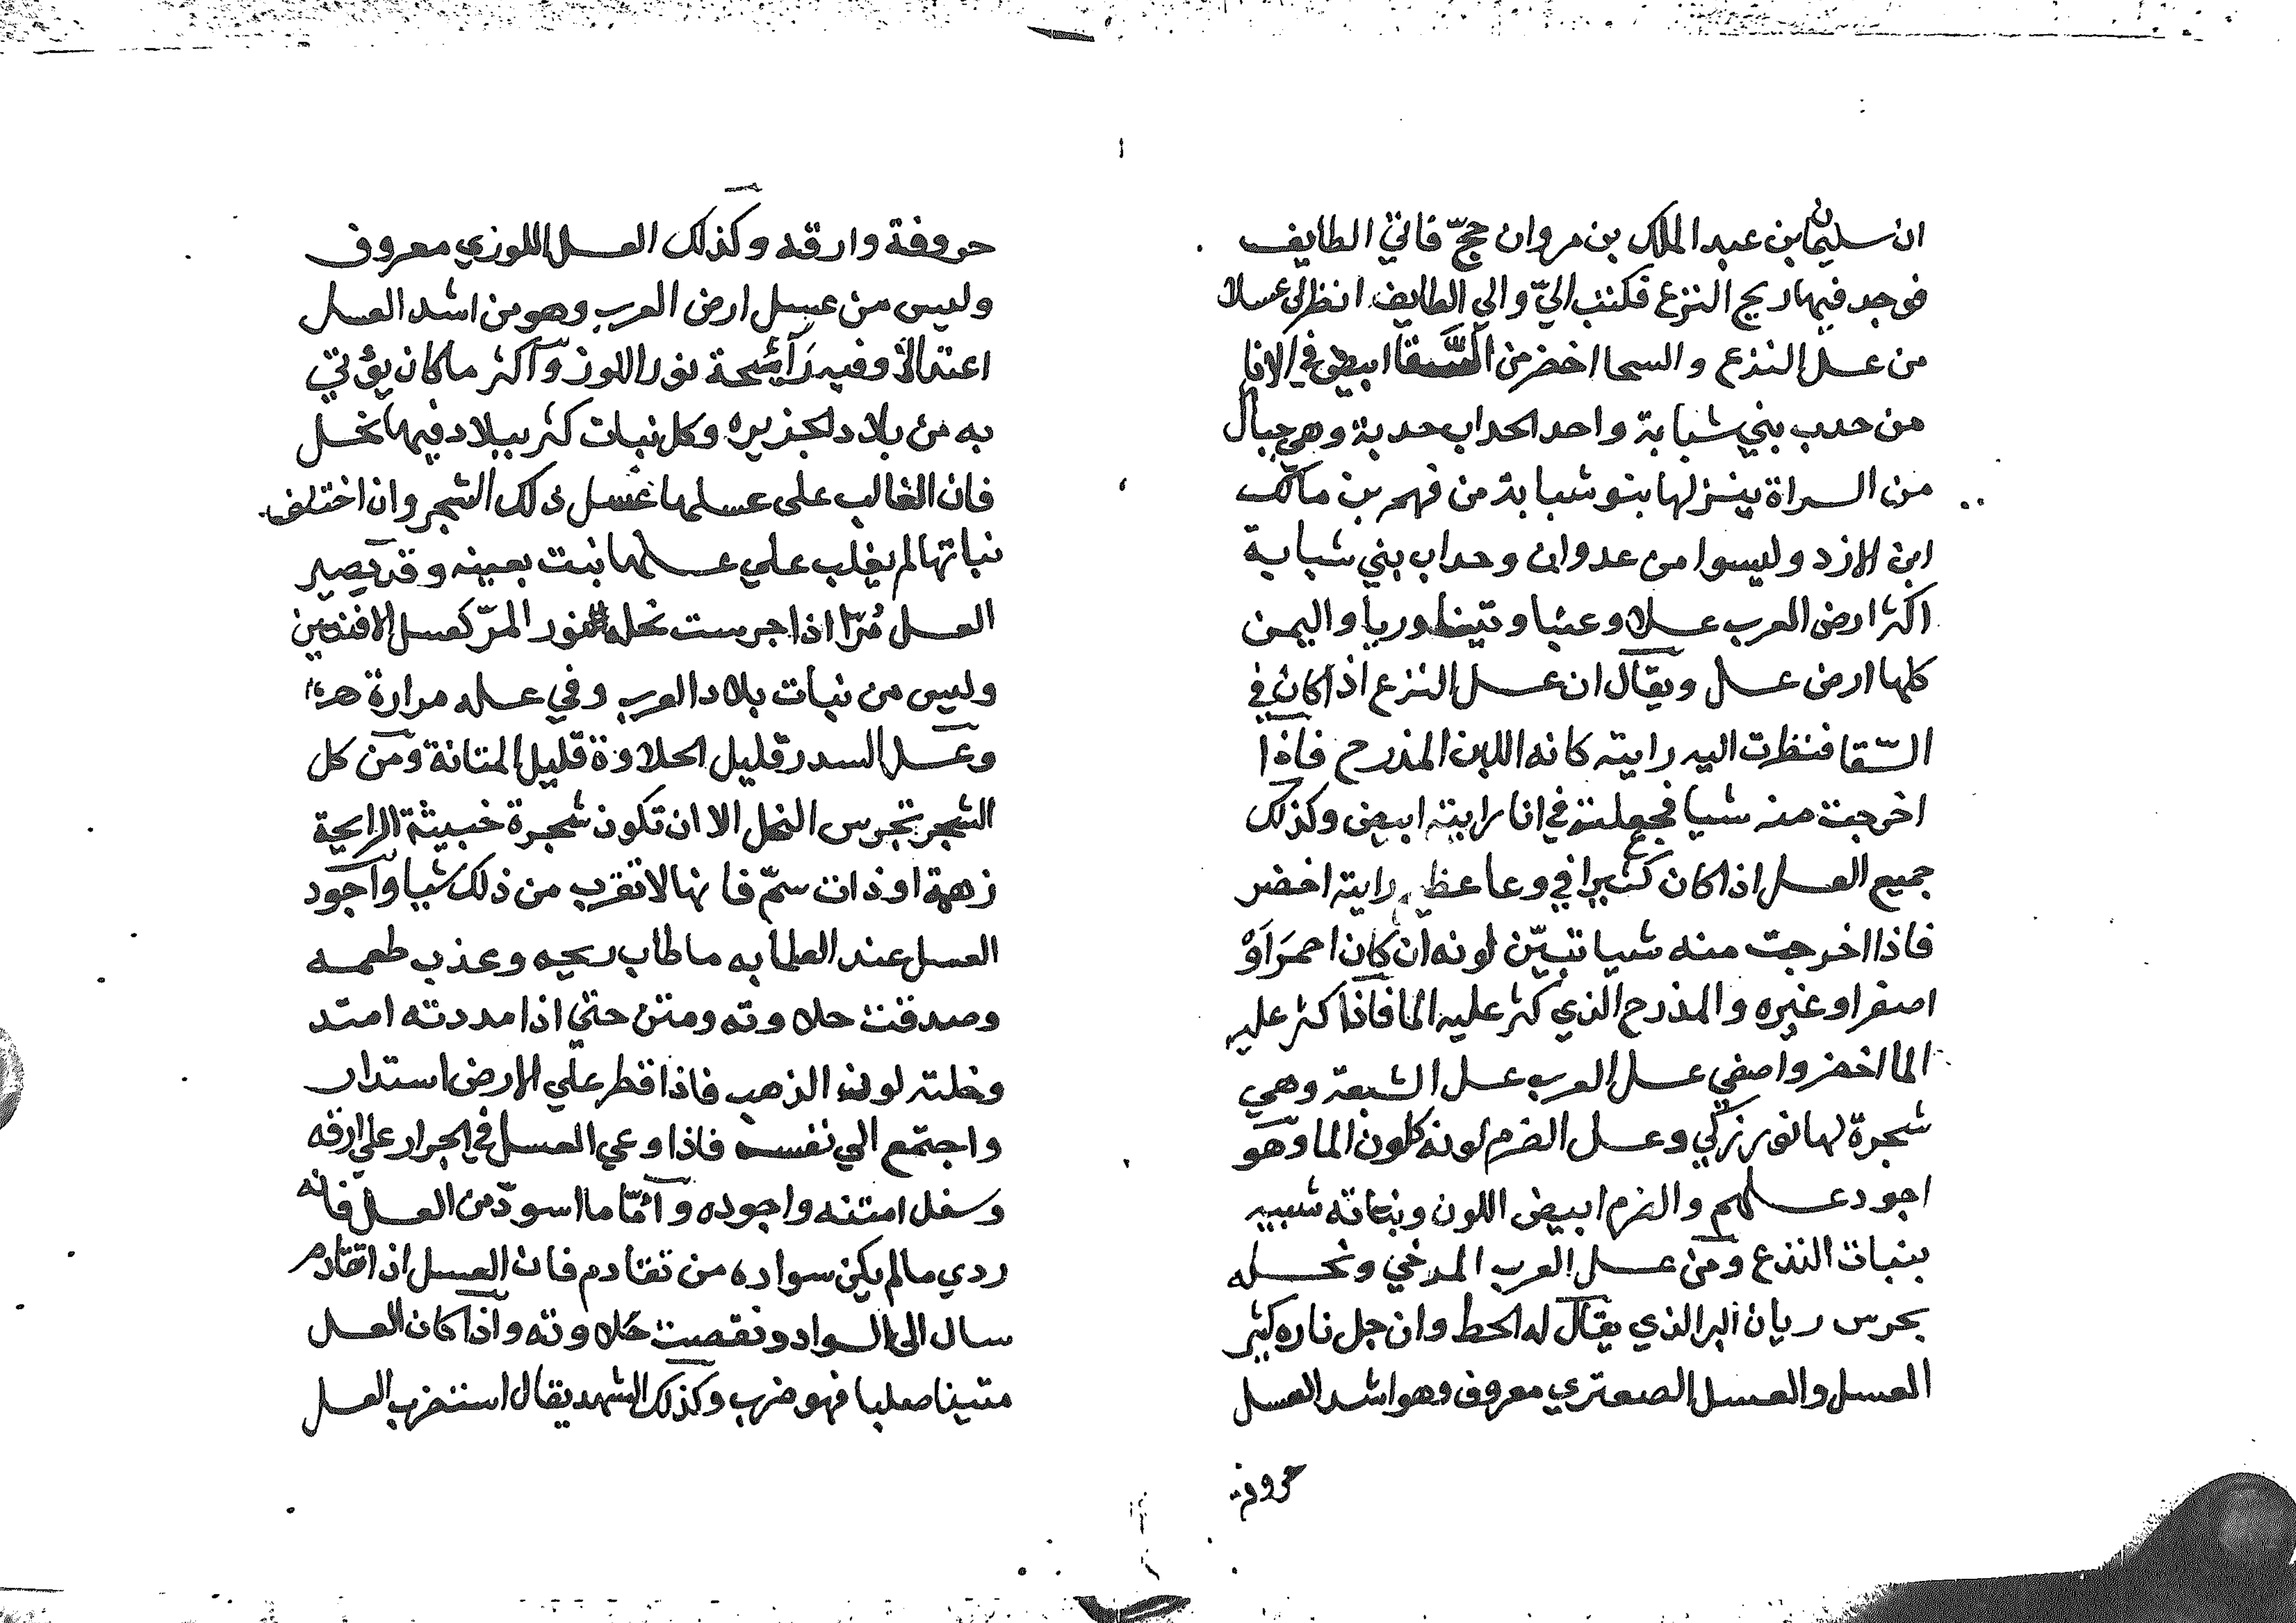 ان سليمان بن عبد الملك بن مروان حجّ فاتي الطايف
فوجد فيها ريح الندغ فكتب اليّ والي الطايف انظر لي عسلا
من عسل الندغ والسحا اخضر من السقا ابيض في الانا
من حدب بني شبابة واحد الحداب حدبة وهي جبال
من السراة ينزلها بنو شبابة من فهم بن مالك
ابن الازد وليسوا من عدوان وحداب بني شبابة
اكثر ارض العرب عسلا وعنبا وتينا وربا واليمن
كلها ارض عسل ويقال ان عسل الندع اذا كان في
السّقا فنظرت اليه رايته كانه اللبن المذرح فاذا
اخرجت منه شيا فجعلته في انا رايته ابيض وكذلك
جميع العسل اذا كان كثيرا في وعا عظيم رايته اخضر
فاذا اخرجت منه شيا تبيّن لونه ان كان احمر اَوْ
اصفر او غيره والمذرح الذي كثر عليه الما فاذا كثر عليه
الما اخضر واصفي عسل العرب عسل الشيعة وهي
شجرة لها نور زكي وعسل الضرم لونه كلون الما وهو
اجود عسلهم والضرم ابيض اللون ونباته شبيه
بنبات الندع ومن عسل العرب المدخي ونحله
بجرس ريان البر الذي يقال له الحط وان جل ناره كثير
العسل والعسل الصعتري معروف وهو اشد العسل
حروفة
حروفة وارقه وكذلك العسل اللوزي معروف
وليس من عسل ارض العرب وهو من اشد العسل
اعتدالا وفيه رايحة نور اللوز واكثر ما كان يؤتي
به من بلاد الجزيره وكل نبات كثر ببلاد فيها نخل
فان الغالب على عسلها عسل ذلك الشجر وان اختلف
نباتها لم يغلب علي عسلها نبت بعينه وقد يصير
العسل مُرّا اذا جرست نحله نور المرّ كعسل الافنتين
وليس من نبات بلاد العرب وفي عسله مرارة
وعسل السدر قليل الحلاوة قليل المتانة ومن كل
الشجر تجرس النحل الا ان تكون شجرة خبيثة الرايحة
زهمة او ذات سمّ فانها لا تقرب من ذلك شيا واجود
العسل عند العلما به ما طاب ريحه وعذب طعمه
وصدقت حلاوته ومتن حتي اذا مددته امتد
وخلته لونه الذهب فاذا قطر علي الارض استدار
واجتمع الي نفسه فاذا وعي العسل في الجرار علي ارقه
وسفل امتنه واجوده وامّا ما اسودّ من العسل فانه
ردي ما لم يكن سواده من تقادم فان العسل اذا تقادم
سال الى السواد ونقصت حلاوته واذا كان العسل
متينا صلبا فهو ضرب وكذلك الشهد يقال استضرب العسل